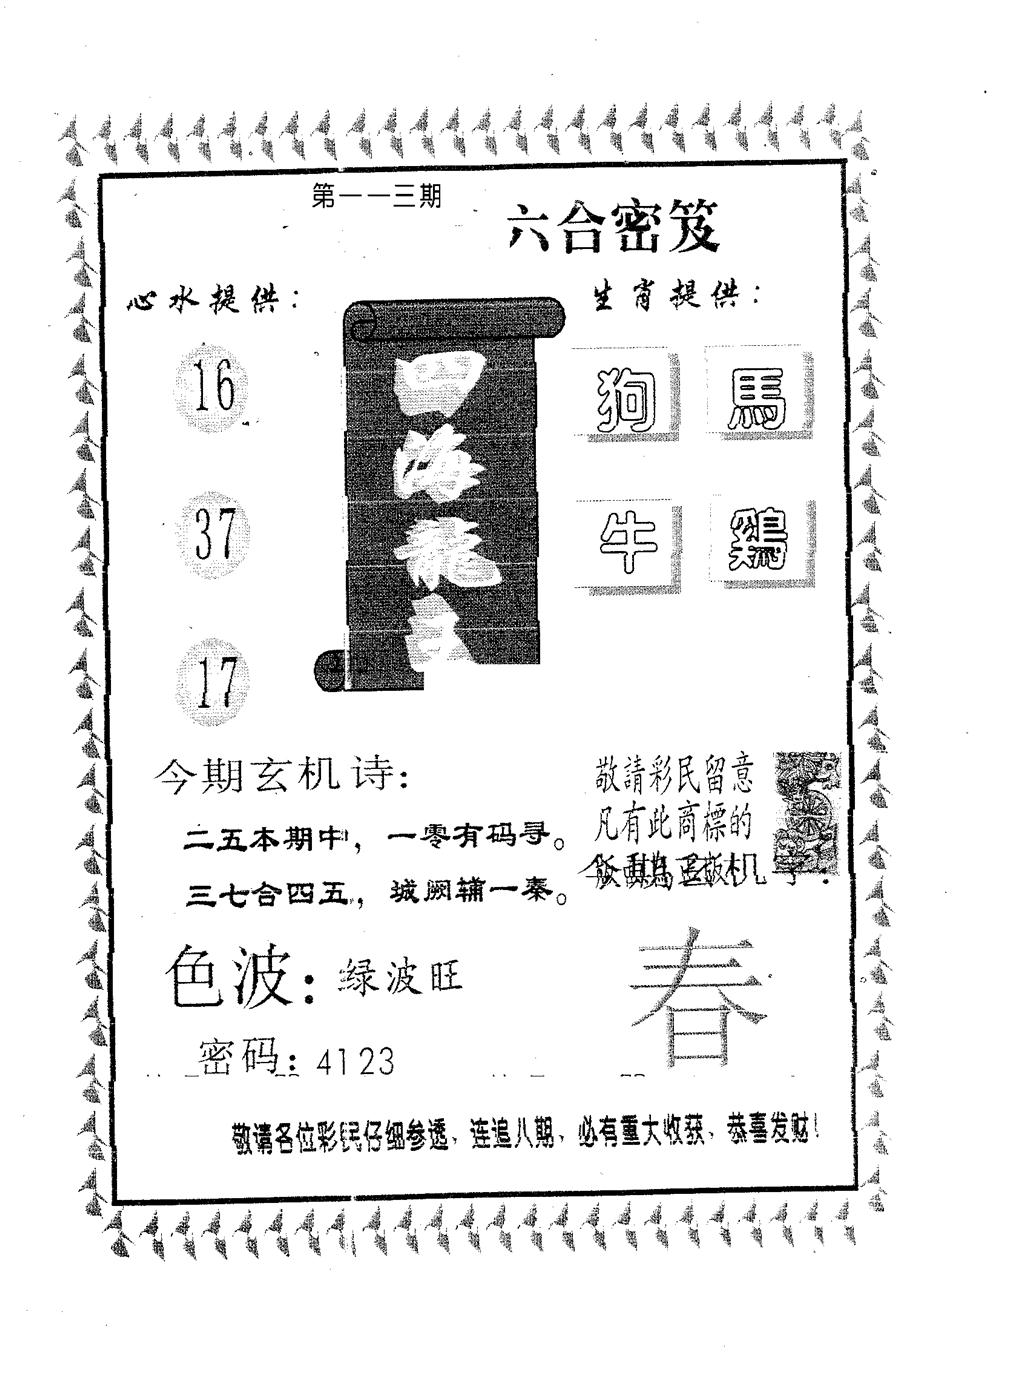 第一一三期
六合密笈
心水提供：
生肖提供：
16
37
17
四海龍
狗 馬
牛 鷄
今期玄机诗：
二五本期中，一零有码寻。
三七合四五，城阙辅一秦。
敬請彩民留意
凡有此商標的
色波：绿波旺
春
密码：4123
敬请各位彩民仔细参透、连追八期、必有重大收获、恭喜发财！